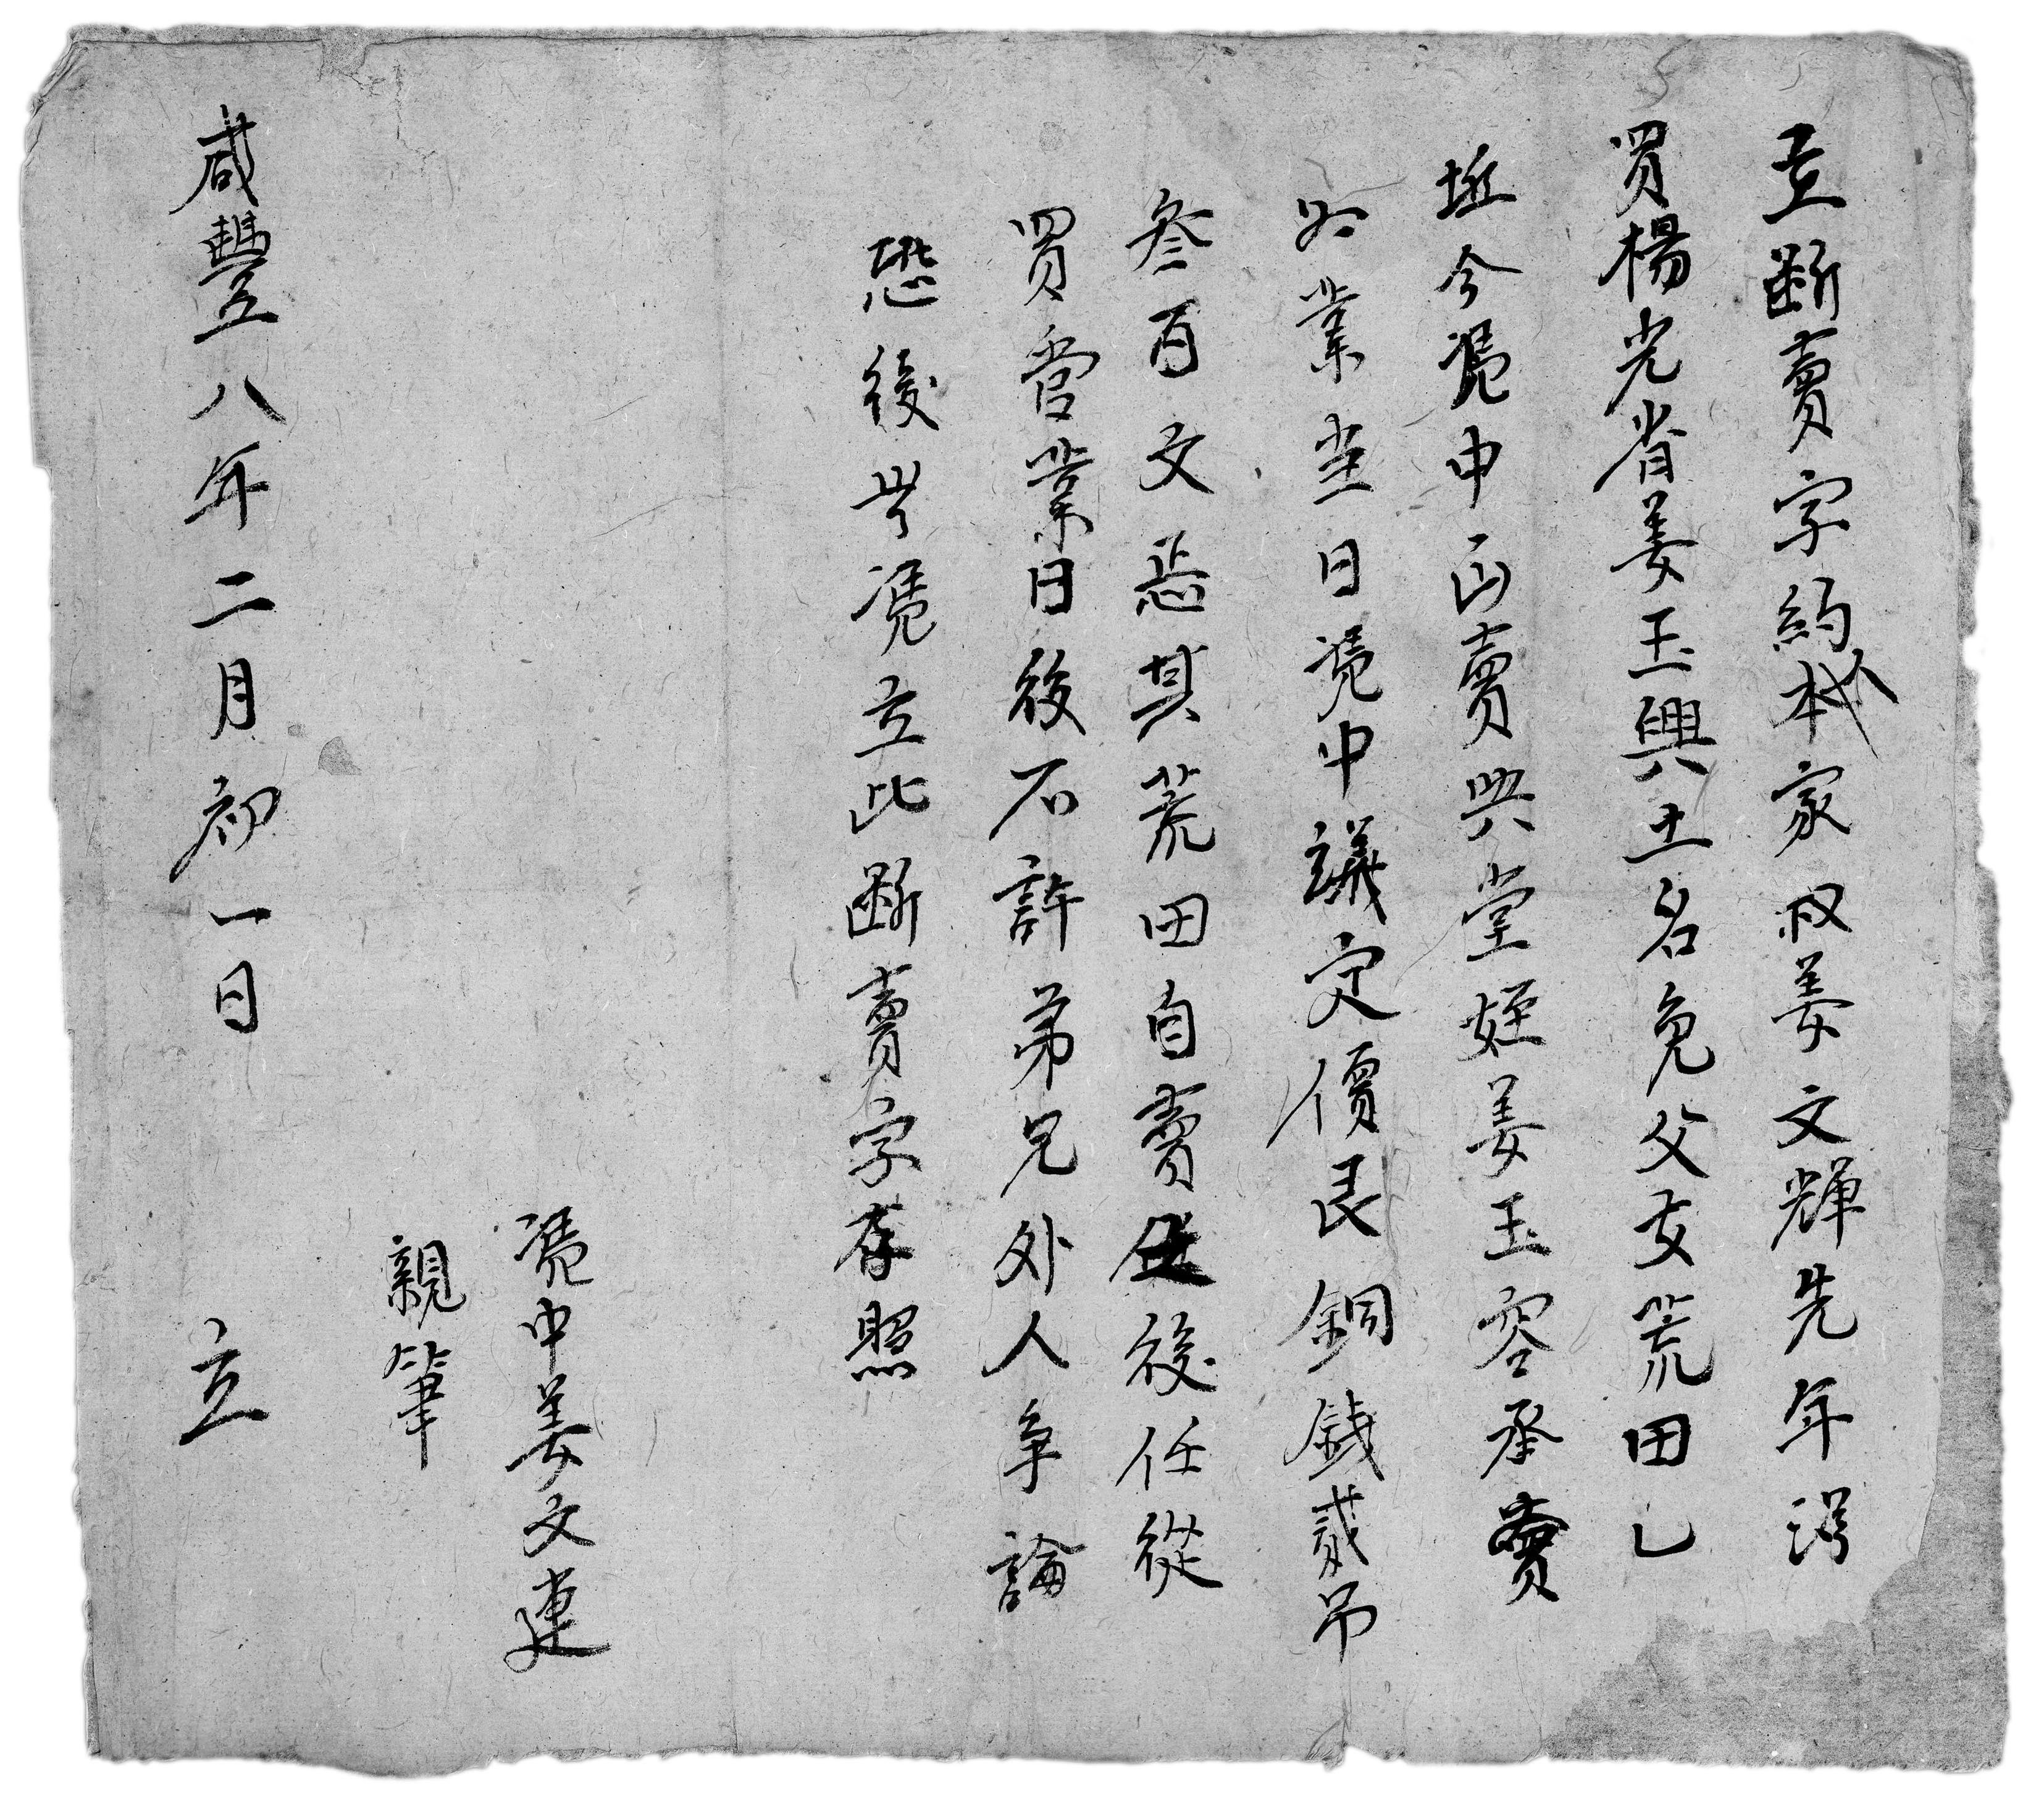 立斷賣字約人本家叔姜文輝先年得
買楊光省姜玉興土名免父友荒田乚
坵今憑中出賣與堂姪姜玉容承買
為業當日憑中議定價艮銅錢貳吊
叁百文恁其荒田自賣之後任從
買當業日後不許弟兄外人争論
恐後無憑立此斷賣字存照
憑中姜文連
親筆
咸豐八年二月初一日 立